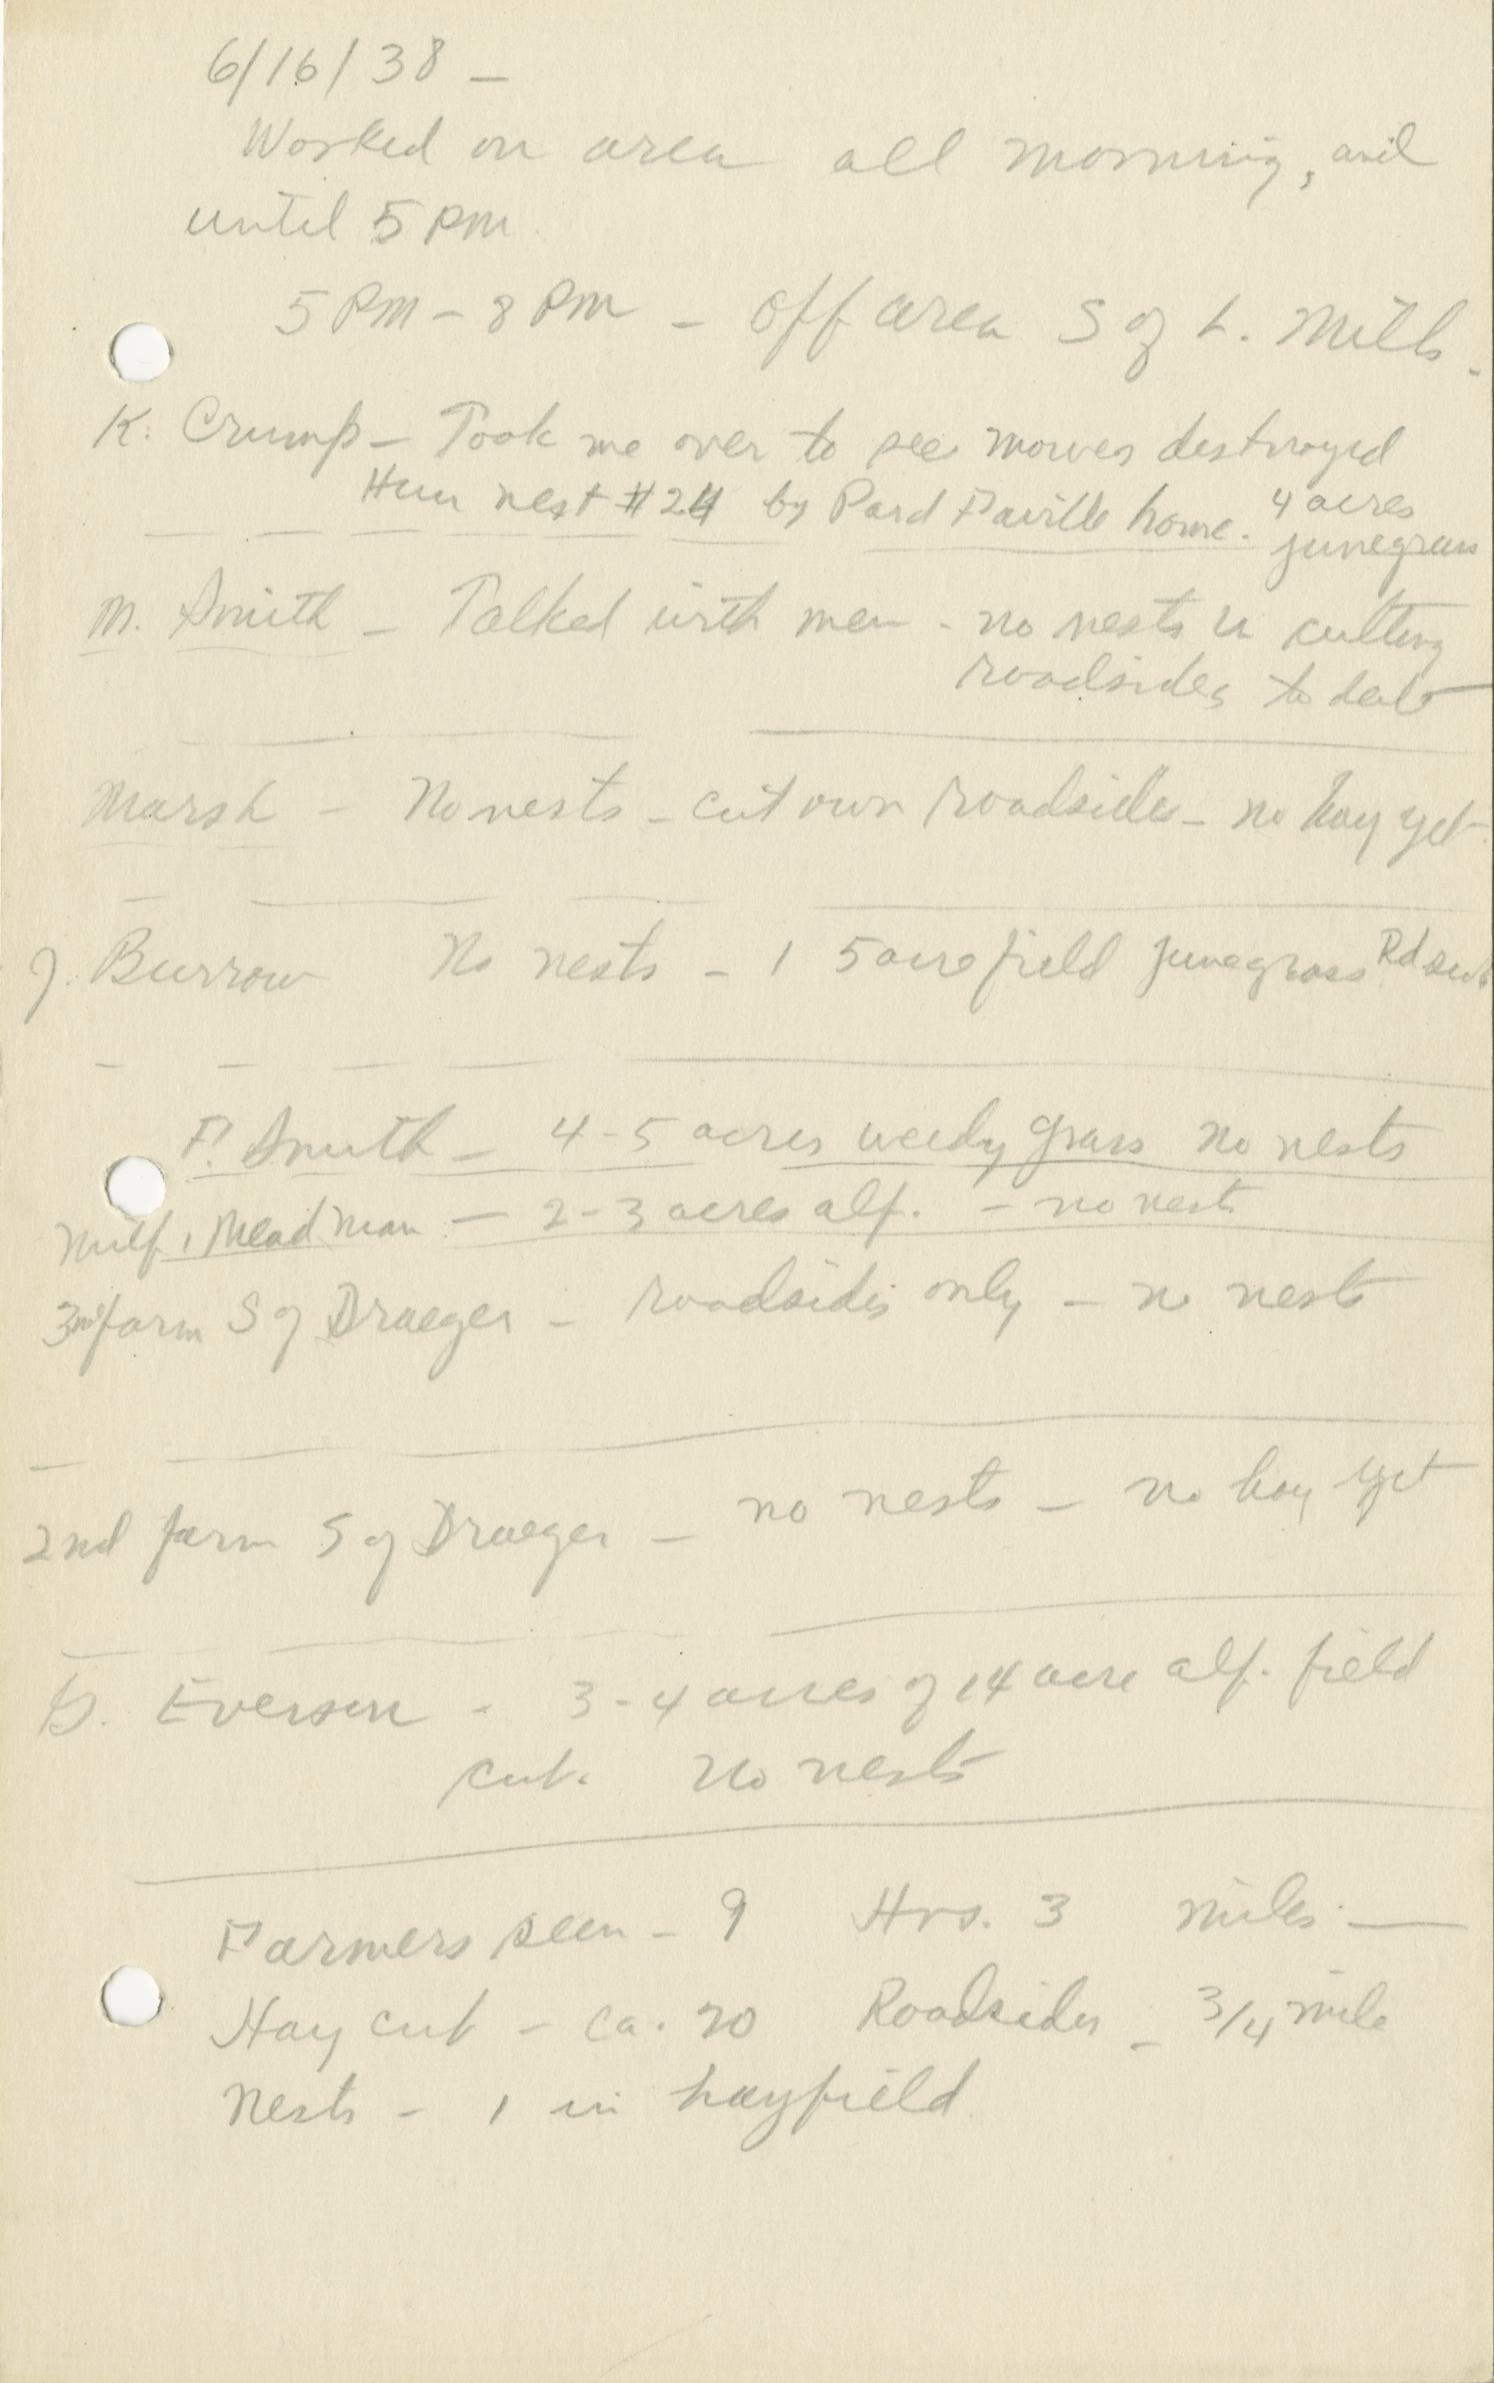 6/16/38 –
Worked on area all morning, and
until 5 PM.
5 PM – 8 PM – off area S of L. Mills.
K. Crump – Took me over to see mower destroyed
Hun nest #24 by Pard Faville home. 4 acres
junegrass
M. Smith – Talked with men - no nests in cutting
roadsides to date
Marsh – No nests – cut own roadsides – no hay yet.
J. Burrow No nests – 1 5 acre field junegrass Rdside
F. Smith – 4-5 acres weedy grass no nests
Milf. Mead man – 2-3 acres alf. – no nests
3rd farm S of Draeger – roadsides only – no nests
2nd farm S of Draeger – no nests – no hay yet
G. Everson - 3-4 acres of 14 acre alf. field
cut. No nests
Farmers seen – 9 Hrs. 3 Miles –
Hay cut – ca. 20 Roadsides – 3/4 mile
Nests – 1 in hayfield